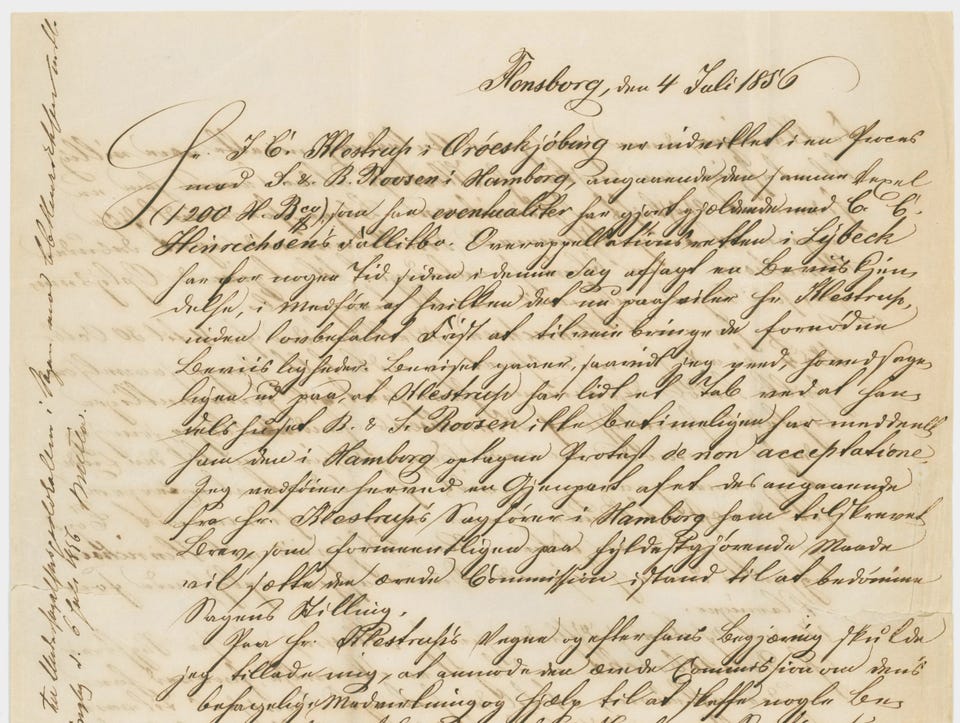 Flensborg, den 4 Juli 1856
Hr. J. C. Klestrup i Ærøeskjøbing er indviklet i en Proces
med S. & B. Roosen i Hamborg, angaaende den samme Vexel
(1200 M. Bco) som han eventualiter har gjort gjældende mod C. C.
Hinrichsen's Fallitbo. Overappellationsretten i Lybeck
har for nogen Tid siden i denne Sag afsagt en Beviiskjen,
delse, i Medfør af hvilken det nu paahviler Hr. Klestrup,
inden lovbefalet Frist at tilveiebringe de fornødne
Beviisligheder. Beviset gaaer, saavidt jeg veed, hovedsage,
ligen ud paa, at Klestrup har lidt et Tab ved at Han,
delshuset B. & S. Roosen ikke betimeligen har meddeelt
ham den i Hamborg optagne Protest de non acceptatione.
Jeg vedføier herved en Gjenpart af et desangaaende
fra Hr. Klestrup's Sagfører i Hamborg ham tilskrevet
Brev, som formeentligen paa fyldestgjørende Maade
vil sætte den ærede Commission istand til at bedømme
Sagens Stilling.
Paa Hr. Klestrup's Vegne og efter hans Begjæring skulde
jeg tillade mig, at anmode den ærede Commission om dens
behagelige Medvirkning og Hjælp til at skaffe nogle Be,
i Sagen mod
d. 6 Juli 1856